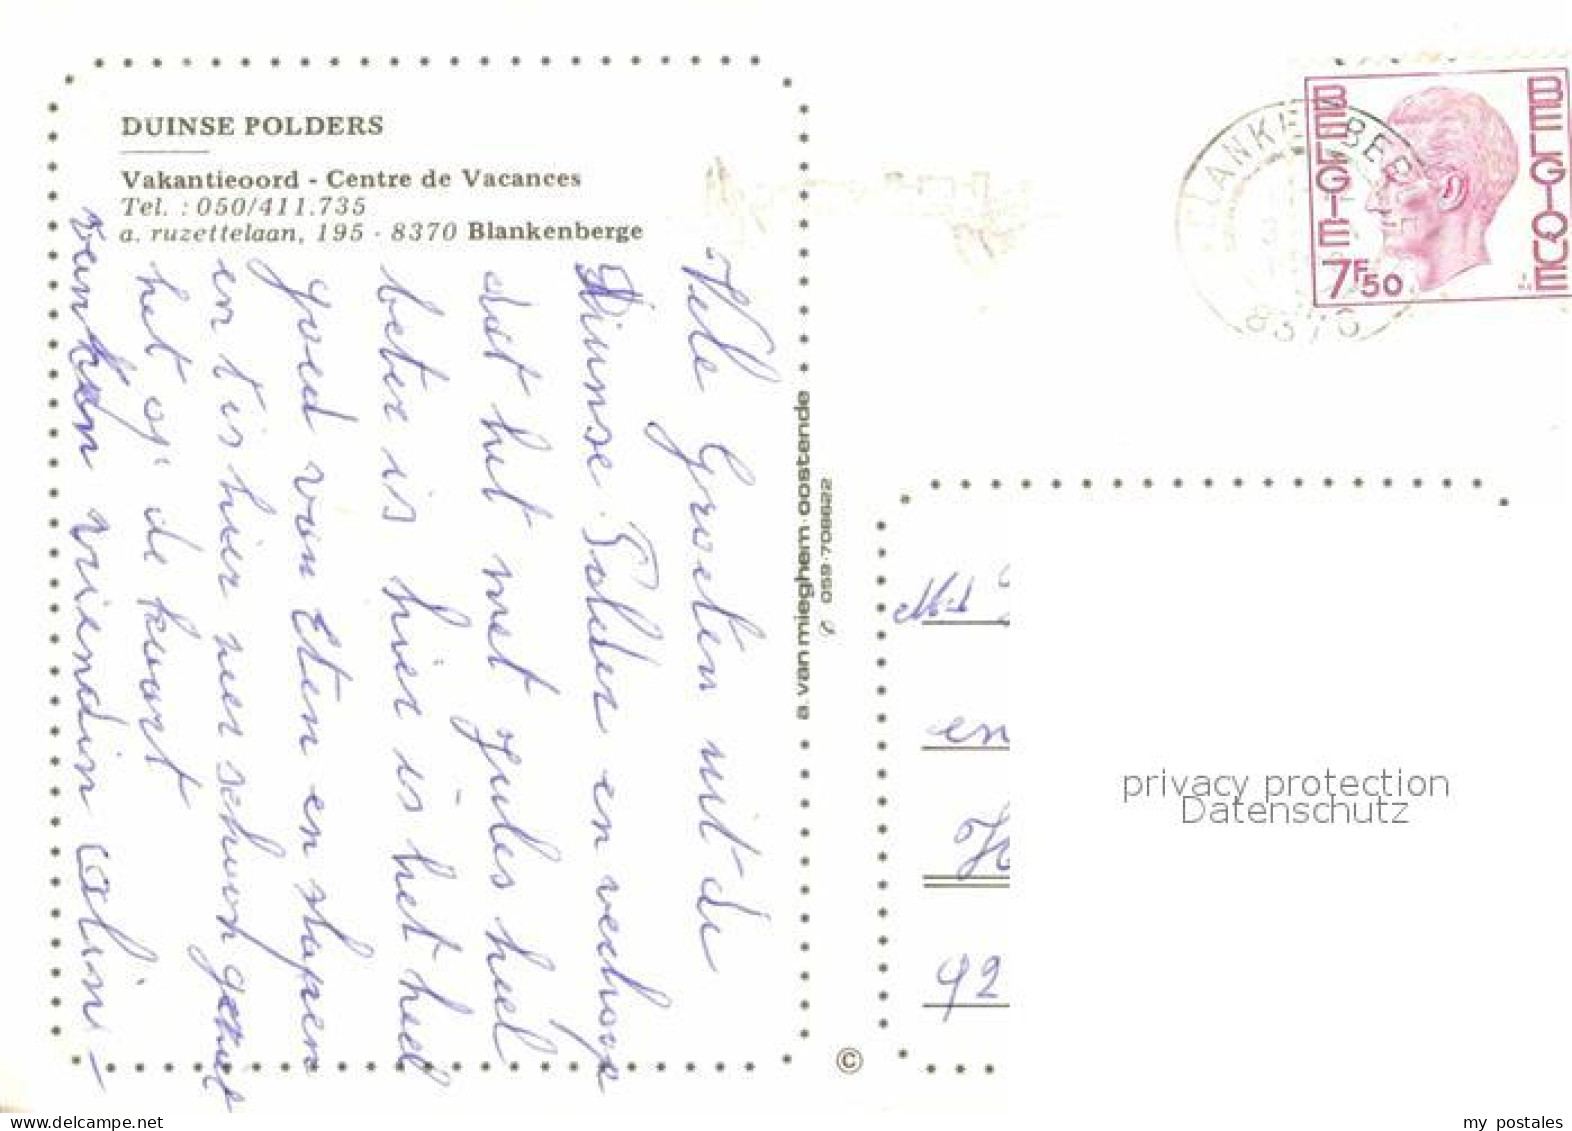 DUINSE POLDERS
Vakantieoord - Centre de Vacances
Tel. : 050/411.735
a. ruzettelaan, 195 - 8370 Blankenberge
Vele Groeten uit de
Duinse Polders en verhoop
dat het met jules heel
beter is hier is het heel
goed van Eten en slapen
en t is hier neer schoon geweest
het op de kaart
van een vriendin Celin -
a. van mieghem · oostende
059-708622
BELGIE
BELGIQUE
7F50
BLANKENBERGE
8370
en
92
privacy protection
Datenschutz
©
www.delcampe.net
my_postales